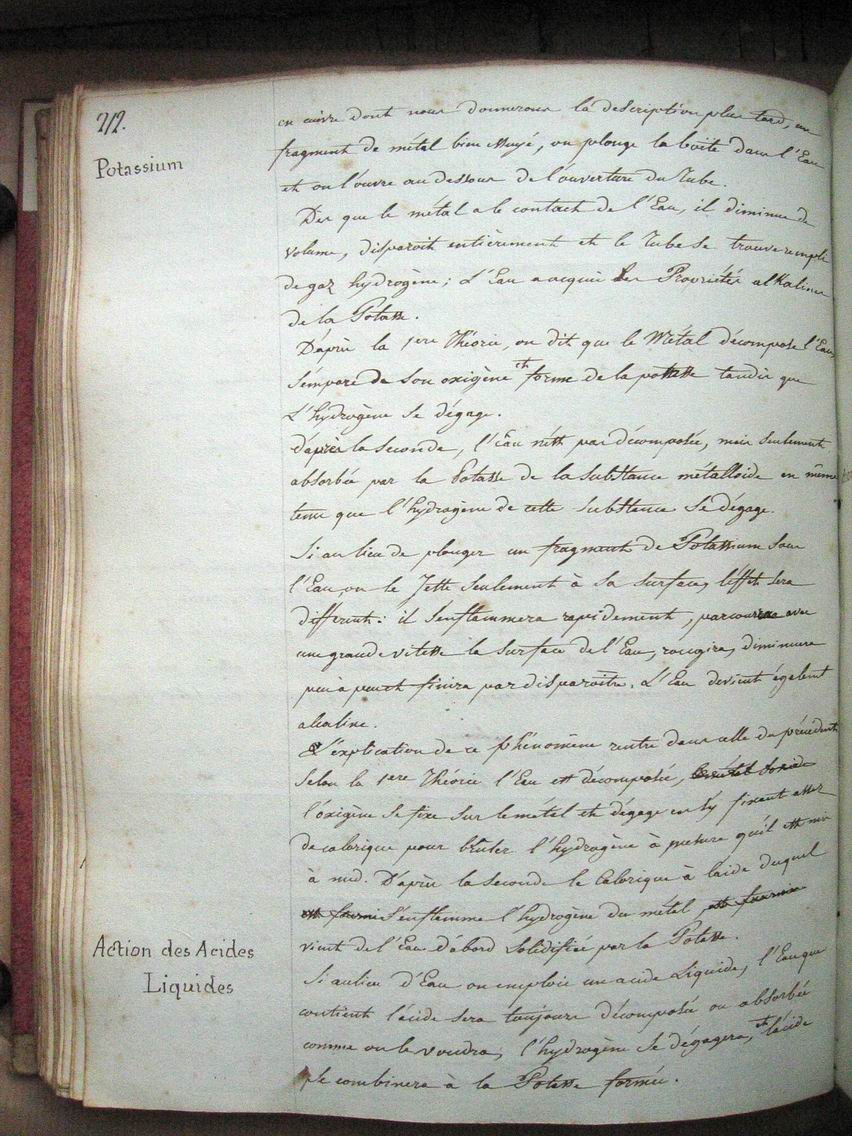 212.
Potassium
en cuivre dont nous donnerons la description plus tard, un
fragment de métal bien essuyé, on plonge la boite dans l'Eau
et on l'ouvre au dessous de l'ouverture du Tube.
Des que le métal a le contact de l'Eau, il diminue de
volume, disparoit entièrement et le Tube se trouve rempli
de gaz hydrogène; L'Eau a acquis les Propriétés alkalines
de la Potasse.
D'après la 1ere Théorie, on dit que le Métal décompose l'Eau
s'empare de son oxigène et forme de la potasse tandis que
L'hydrogène se dégage.
d'après la seconde, l'Eau n'est pas décomposée, mais seulement
absorbée par la Potasse de la substance métalloide en même
tems que l'hydrogène de cette substance se dégage.
Si au lieu de plonger un fragment de Potassium sous
l'Eau on le Jette seulement à sa surface, l'effet sera
différent: il s'enflammera rapidement, parcourra avec
une grande vitesse la surface de l'Eau, rougira, diminuera
peu à peu et finira par disparoître. L'Eau devient égalemt
alcaline.
L'explication de ce phénomène rentre dans celle du précédent
Selon la 1ere Théorie l'Eau est décomposée,
l'oxigène se fixe sur le métal et dégage en s'y fixant assez
de calorique pour brûler l'hydrogène à mesure qu'il est mis
à nud. D'après la seconde le Calorique à l'aide duquel
est fourni s'enflamme l'hydrogène du métal est fournie
vient de l'Eau d'abord solidifiée par la Potasse.
Action des Acides
Liquides
Si au lieu d'Eau on emploie un acide Liquide, l'Eau que
contient l'acide sera toujours décomposée ou absorbée
comme on le voudra, l'hydrogène se dégagera, et l'acide
se combinera à la Potasse formée.